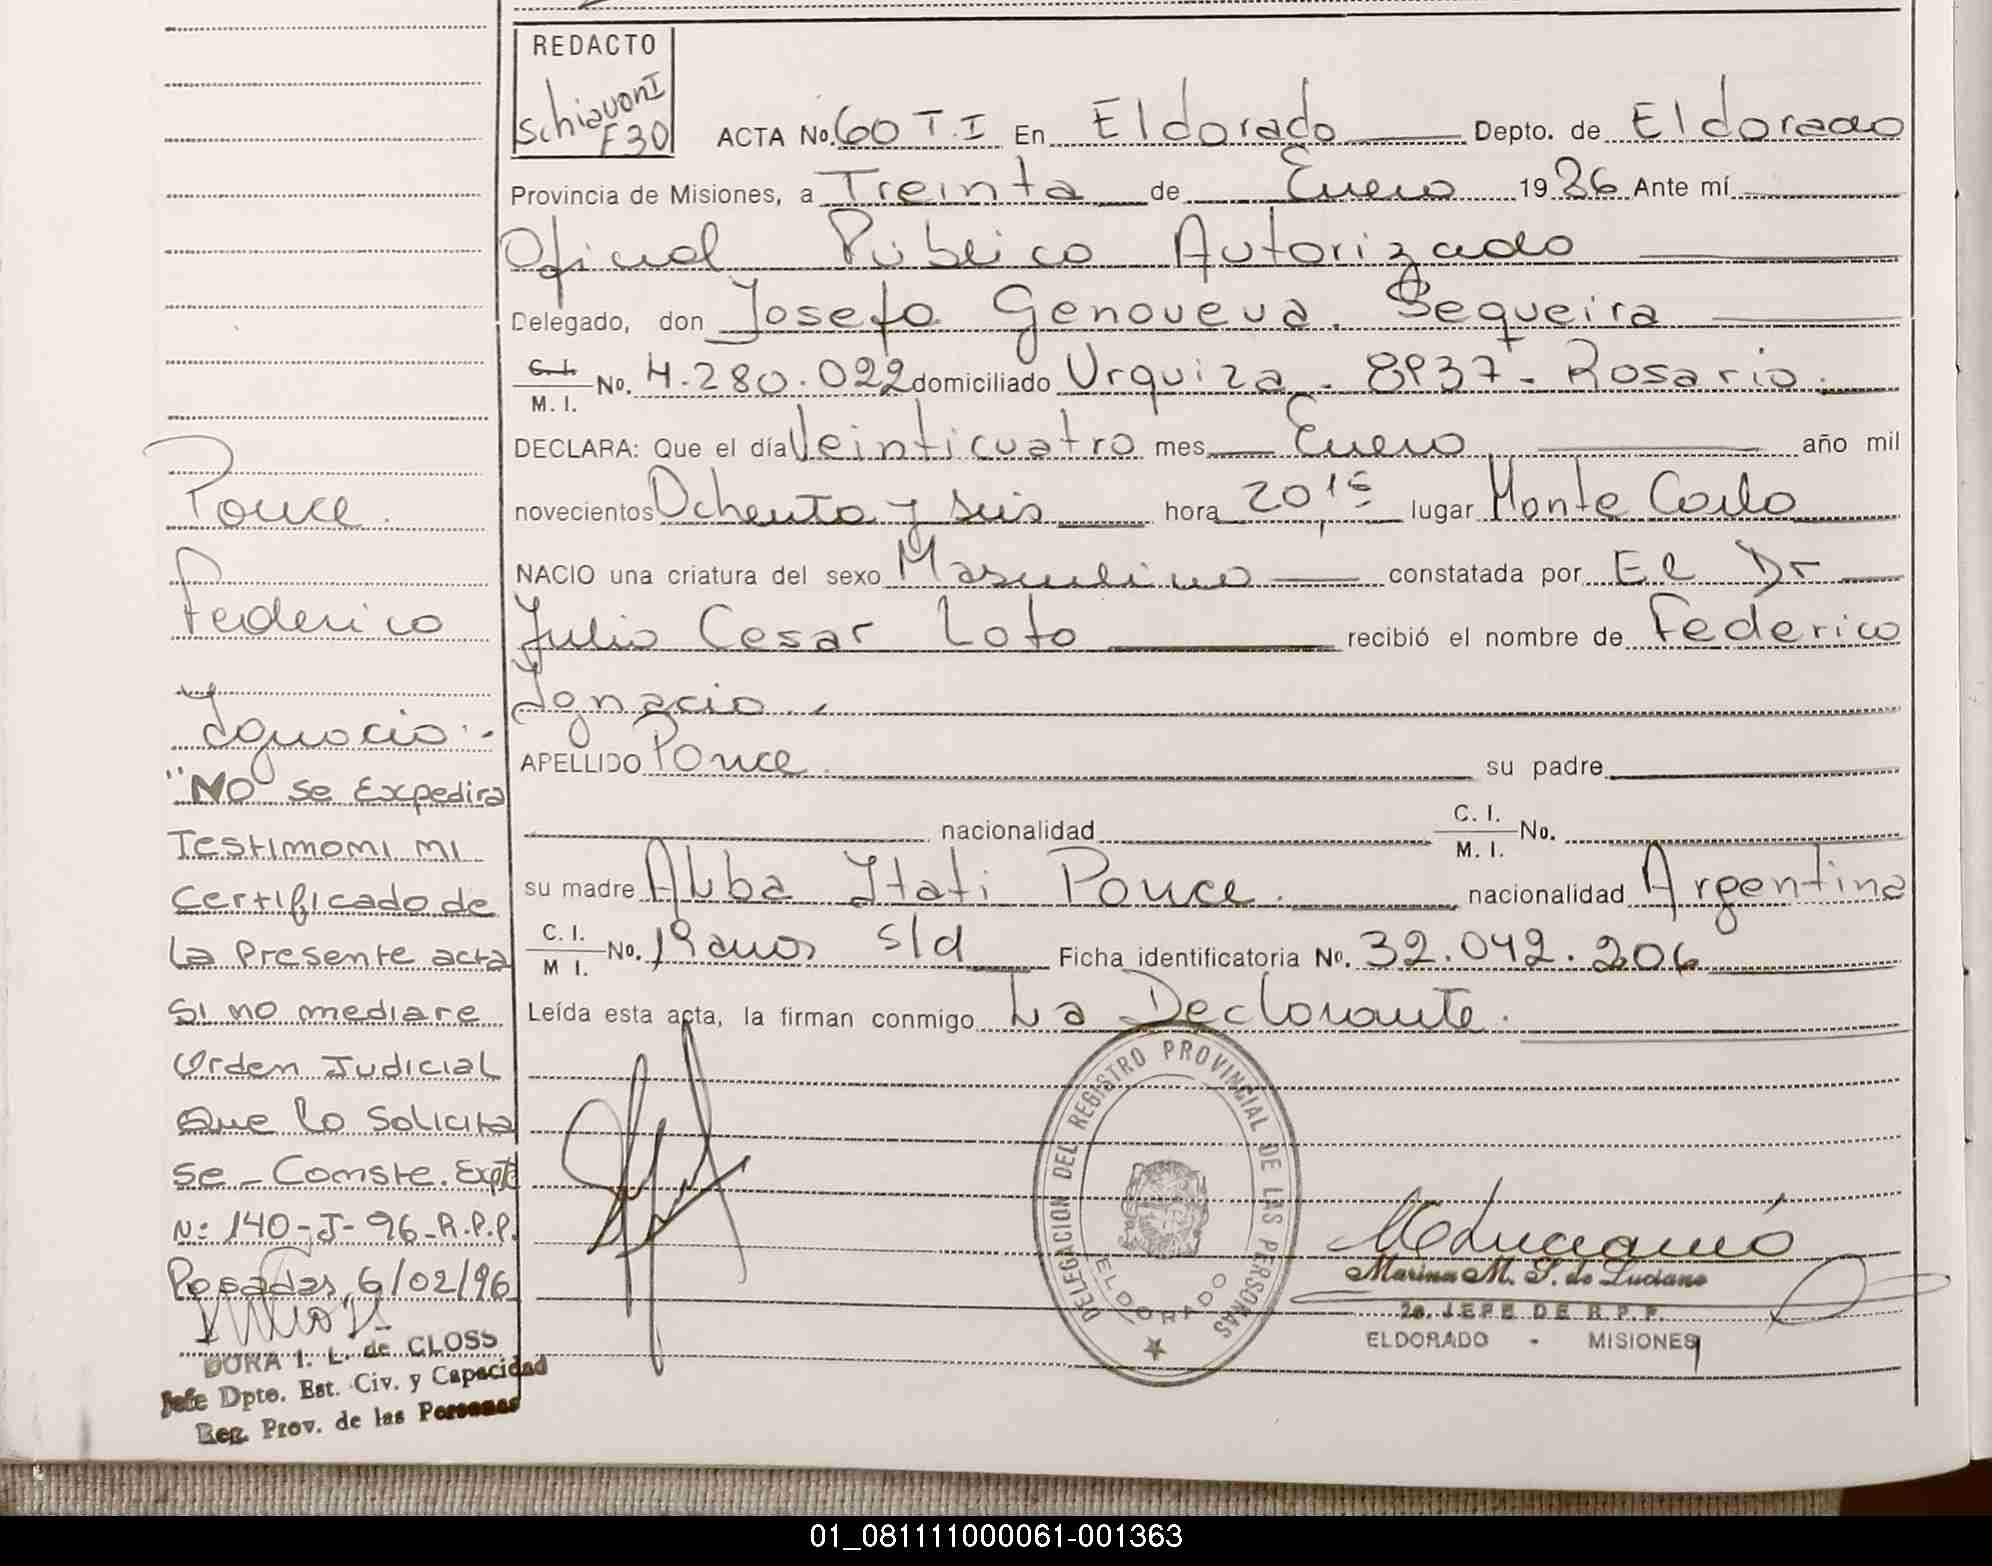 REDACTO
Schiavoni
F 30
ACTA No. 60 T.I En Eldorado Depto. de Eldorado
Provincia de Misiones, a Treinta de Enero 1986 Ante mí
Oficial Público Autorizado
Delegado, don Josefa Genoveva Sequeira
C. I.
M. I.
No. 4.280.022 domiciliado Urquiza - 8937 - Rosario.
DECLARA: Que el día Veinticuatro mes Enero año mil
novecientos Ochenta y seis hora 20,15 lugar Monte Carlo
NACIO una criatura del sexo Masculino constatada por El Dr
Julio Cesar Loto recibió el nombre de Federico
Ignacio.
APELLIDO Ponce. su padre
nacionalidad C. I.
M. I.
No.
su madre Alba Itati Ponce. nacionalidad Argentina
C. I.
M I.
No. 19 anos s/d Ficha identificatoria No. 32.042.206
Leída esta acta, la firman conmigo La Declarante.
Ponce.
Federico
Ignacio.-
"NO se Expedira
Testimoni ni
Certificado de
la Presente acta
si no mediare
Orden Judicial
Que lo Solicita
se - Conste. Expte
N: 140-J-96-R.P.P.
Posadas, 6/02/96
DORA I. L. de CLOSS
Jefe Dpto. Est. Civ. y Capacidad
Reg. Prov. de las Personas
DELEGACION DEL REGISTRO PROVINCIAL DE LAS PERSONAS
ELDORADO
Marina M. S. de Luciano
2a. JEFE DE R.P.P.
ELDORADO - MISIONES
01_081111000061-001363